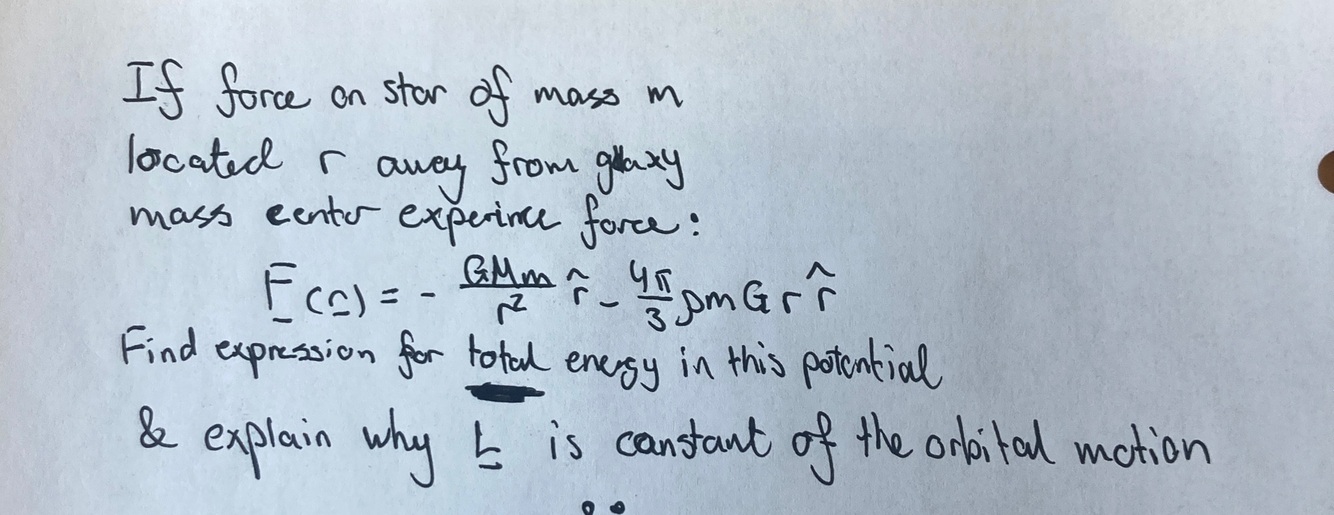 If force on star of mass m
located r away from galaxy
mass center experince force:
F(r) = - GMm/r² r̂ - 4π/3 ρmGr r̂
Find expression for total energy in this potential
& explain why L is constant of the orbital motion